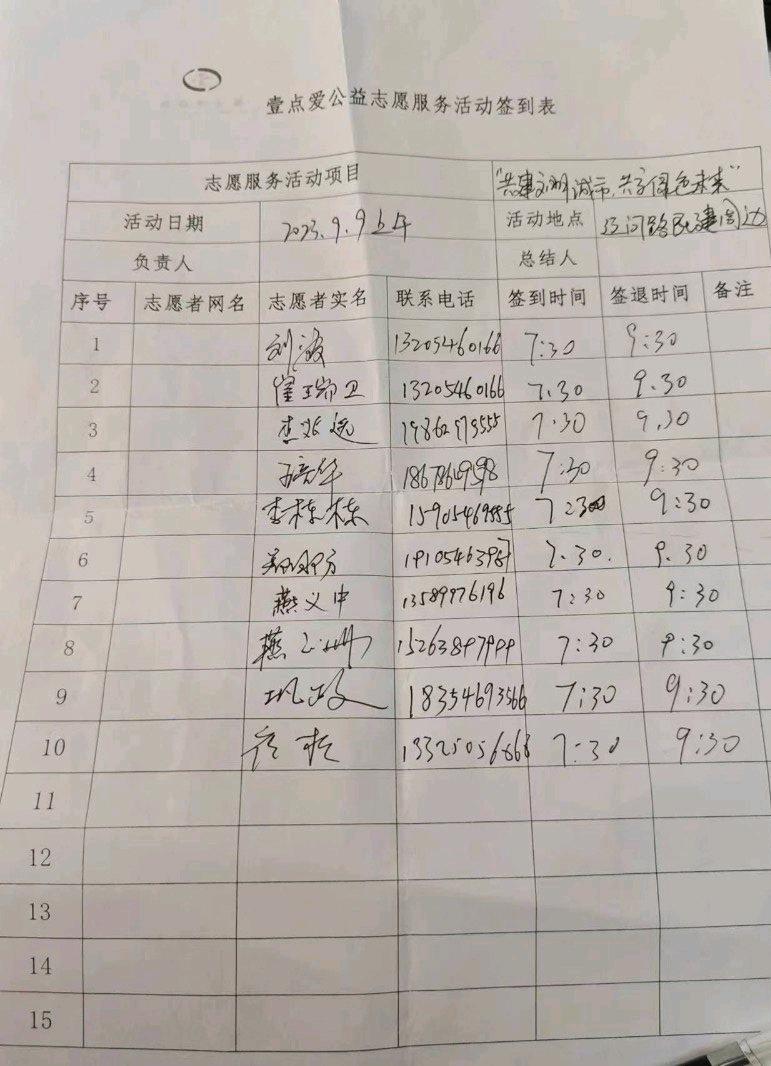 壹点爱公益志愿服务活动签到表
志愿服务活动项目 "共建文明城市,共享绿色未来"
活动日期 2023.9.9上午 活动地点 路 周边
负责人 总结人
序号 志愿者网名 志愿者实名 联系电话 签到时间 签退时间 备注
1 刘波 13205460166 7:30 9:30
2 崔瑞卫 13205460166 7.30 9.30
3 李 7.30 9.30
4 7:30 9:30
5 李栋栋 15905469885 7:30 9:30
6 7.30. 9.30
7 燕义中 13589976196 7:30 9:30
8 燕 7:30 9:30
9 18354693566 7:30 9:30
10 7:30 9:30
11
12
13
14
15